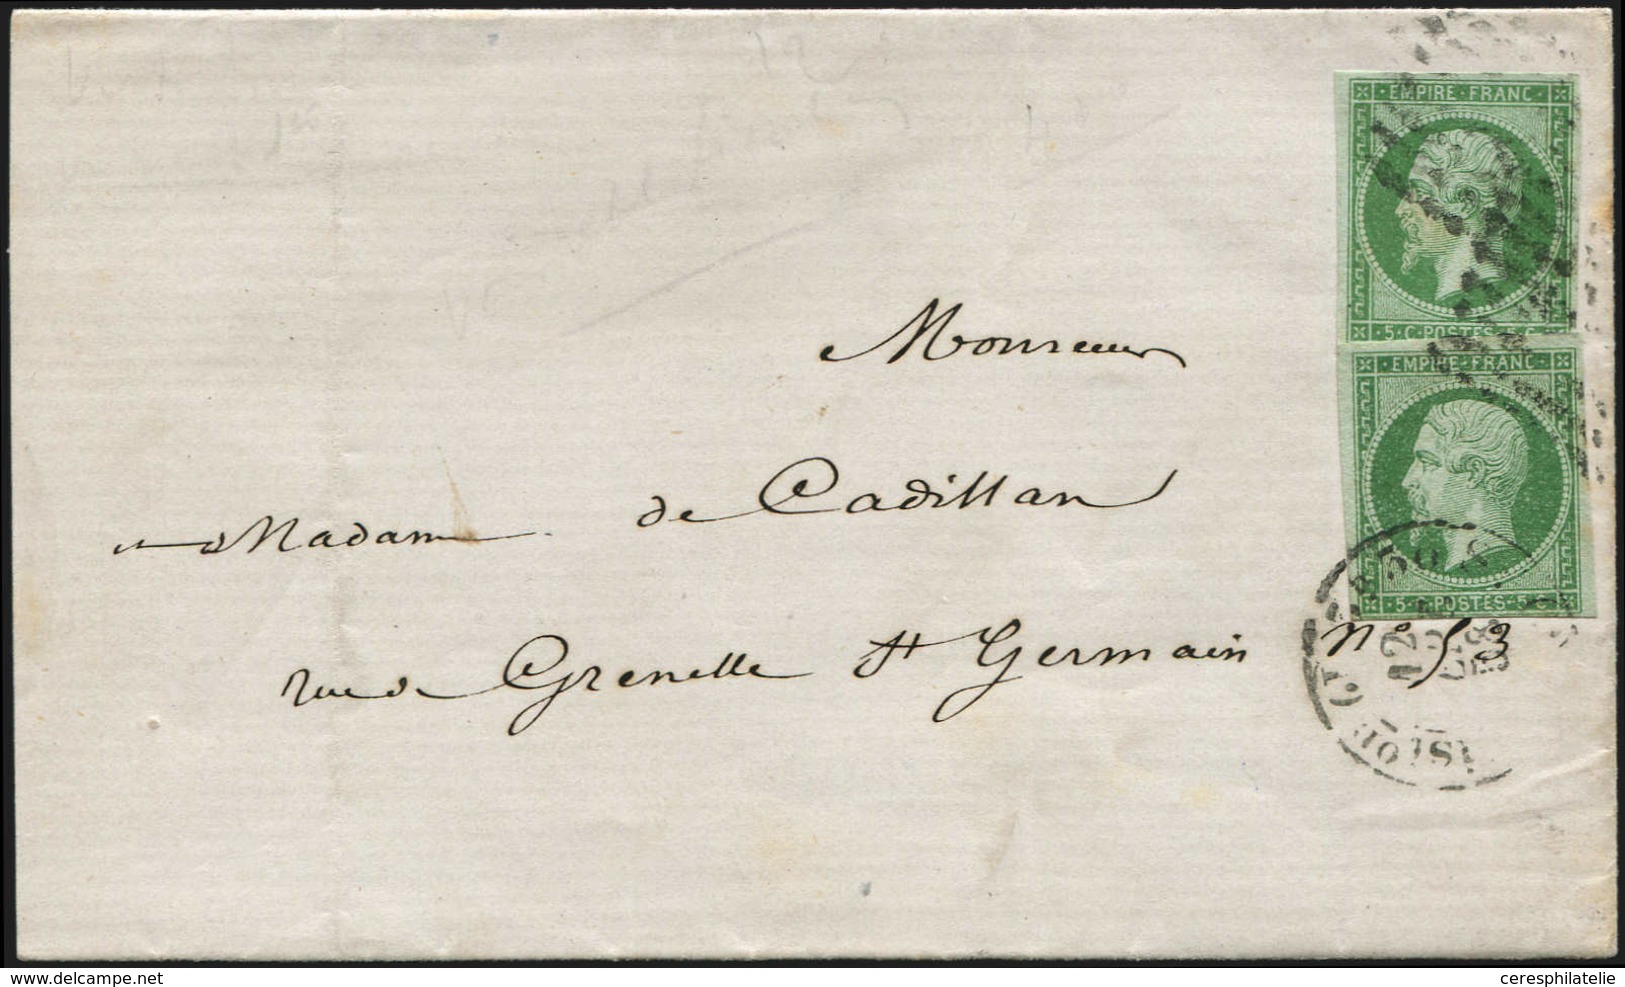 EMPIRE FRANC
5 C POSTES 5 C
EMPIRE FRANC
5 C POSTES 5 C
Monsieur
et Madame de Cadillan
rue de Grenelle St Germain n° 53
12
delcampe.net
ceresphilatelie